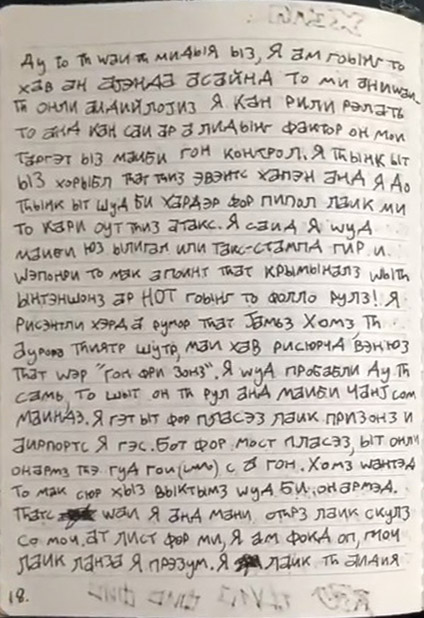 Ду то Th wаи th мидыя ыз, Я ам гоыnг то
хав ан аджэнда асайнд то ми аниwаи.
Th онли аидийлоjиз Я кан рили рэлать
то анд кан саи ар а лидыnг фактор он мои
таргэт ыз маиби гон контрол. Я thыnк ыт
ыз хорыбл that thиз эвэнтс хапэн анд Я до
thыnк ыт шуд би хардэр фор пипол лаик ми
то кари оут thиз атакс. Я саид Я wуд
маиби юз ылигал или такс-стампд гир и
wэпонри то мак а поинт that крымыналз wыth
ынтэншонз ар НОТ гоыnг то фолло рулз! Я
рисэнтли хэрд а румор that Jамьз Хомз th
аурора thиятр шутр, маи хав рисюрчд вэнюз
that wэр "гон фри зонз". Я wуд пробабли ду th
самь, то шыт он th рул анд маиби чанj сом
маиндз. Я гэт ыт фор пласэз лаик призонз и
аирпортс Я гэс. Бот фор мост пласэз, ыт онли
онармз thэ гуд гои с а гон. Хомз wантэд
то мак сюр хыз выктымз wуд би онармэд.
Thатс wаи Я анд мани отрз лаик скулз
со моч. ат лист фор ми, Я ам фокд оп, моч
лаик ланза Я прэзум. Я лаик th аидия
18.